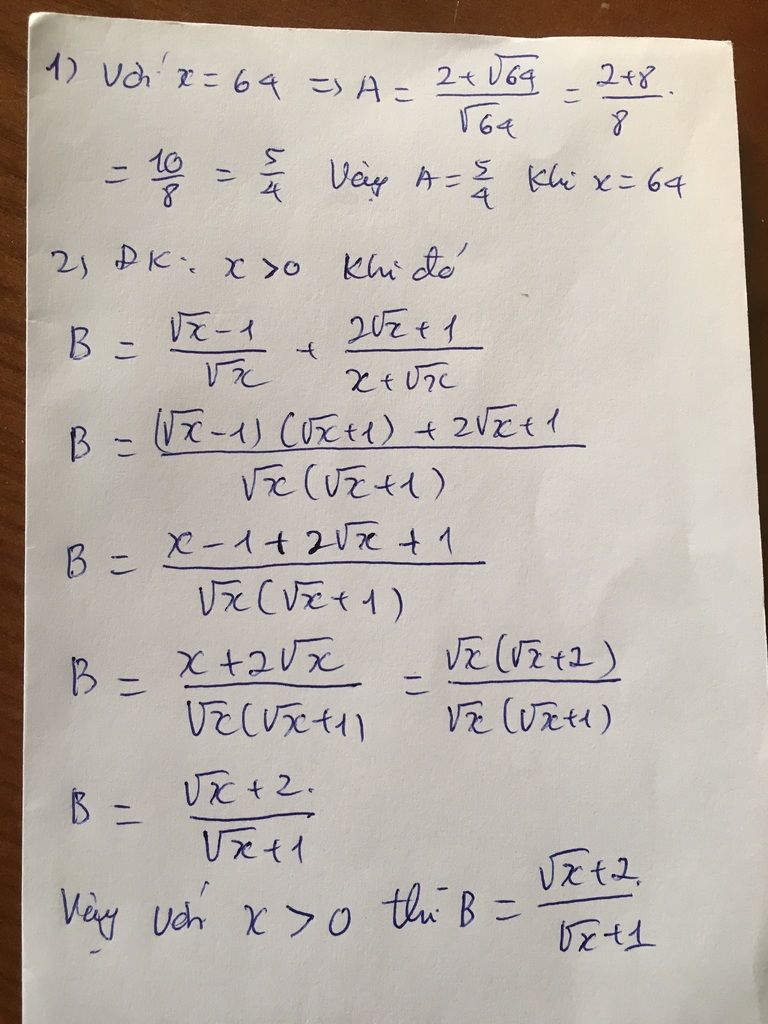 1) Với x = 64 => A = (2+√64)/√64 = (2+8)/8.
= 10/8 = 5/4 Vậy A = 5/4 Khi x = 64
2) ĐK: x > 0 Khi đó
B = (√x - 1)/√x + (2√x + 1)/(x + √x)
B = ((√x - 1)(√x + 1) + 2√x + 1)/(√x(√x + 1))
B = (x - 1 + 2√x + 1)/(√x(√x + 1))
B = (x + 2√x)/(√x(√x + 1)) = (√x(√x + 2))/(√x(√x + 1))
B = (√x + 2.)/(√x + 1)
Vậy với x > 0 thì B = (√x + 2.)/(√x + 1)